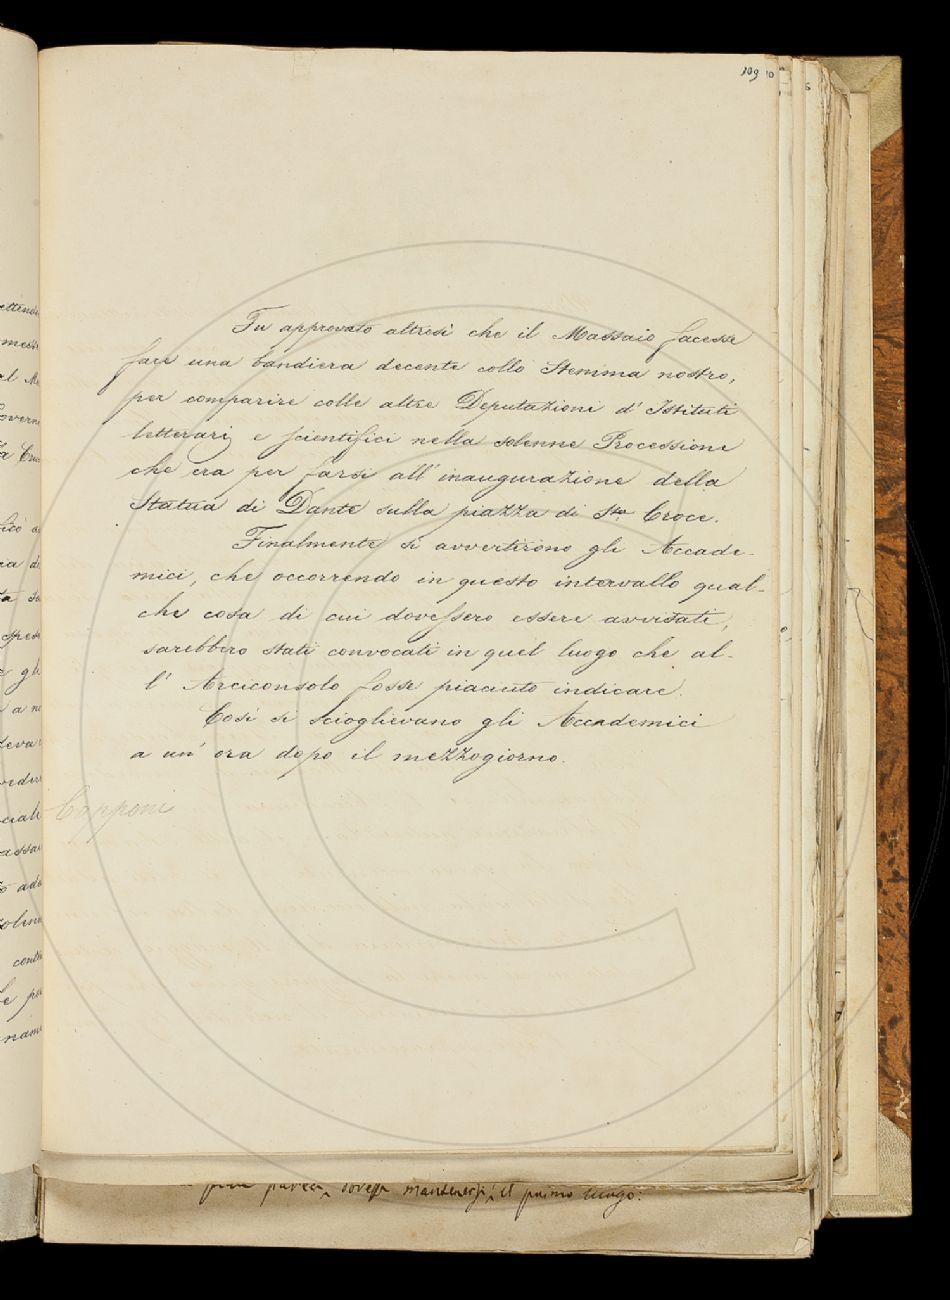 109
Fu approvato altresì che il Massaio facesse
fare una bandiera decente collo Stemma nostro,
per comparire colle altre Deputazioni d' Istituti
letterarj e scientifici nella solenne Processione
che era per farsi all' inaugurazione della
Statua di Dante sulla piazza di Sta. Croce.
Finalmente si avvertirono gli Accade-
mici, che occorrendo in questo intervallo qual-
che cosa di cui dovessero essere avvisati,
sarebbero stati convocati in quel luogo che al-
l' Arciconsolo fosse piaciuto indicare.
Così si scioglievano gli Accademici
a un' ora dopo il mezzogiorno.
Capponi
mantenersi il primo luogo: